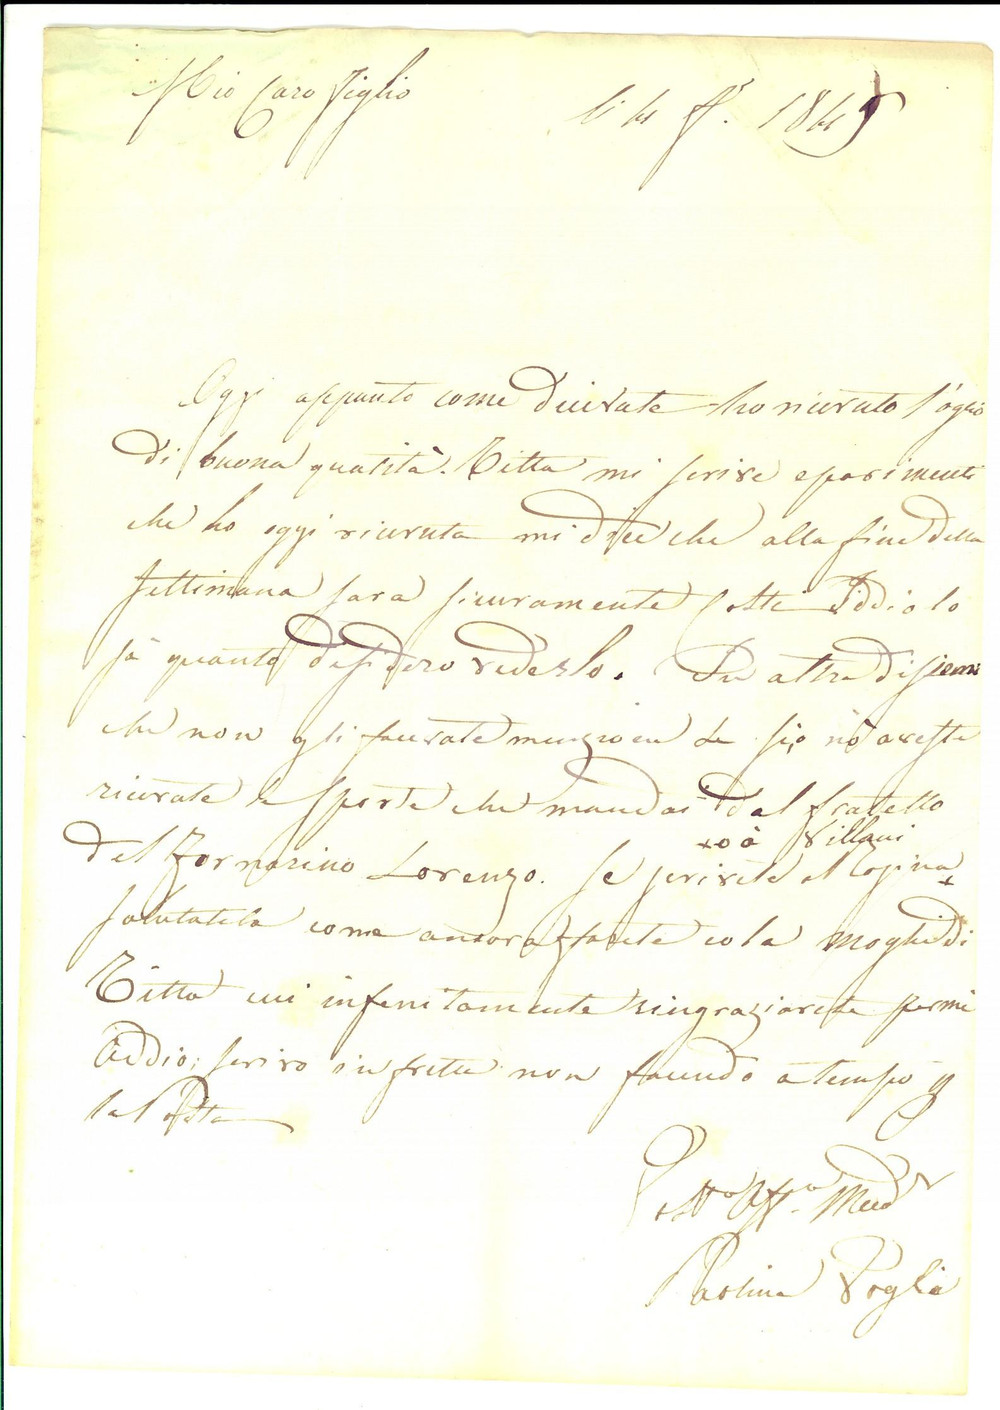 Mio Caro Figlio
li 14 1845
Oggi appunto come dicivate ho ricevuto l'oglio
di buona qualità. Titta mi scrive e parimenti
che ho oggi ricevuta mi dice che alla fine della
settimana sara sicuramente costi Iddio lo
sà quanto desidero vederlo. In altra
che non gli facevate menzione se no aveste
ricevute le sporte che mandai dal fratello
+ o à Villani
del Fornarino Lorenzo. Se scrivete al +
salutatela come ancora farete co la moglie di
Titta cui infinitamente ringraziarete per mè
Addio; scrivo in fretta non facendo a tempo
la Posta
Aff.ma Mad
Paolina Voglia